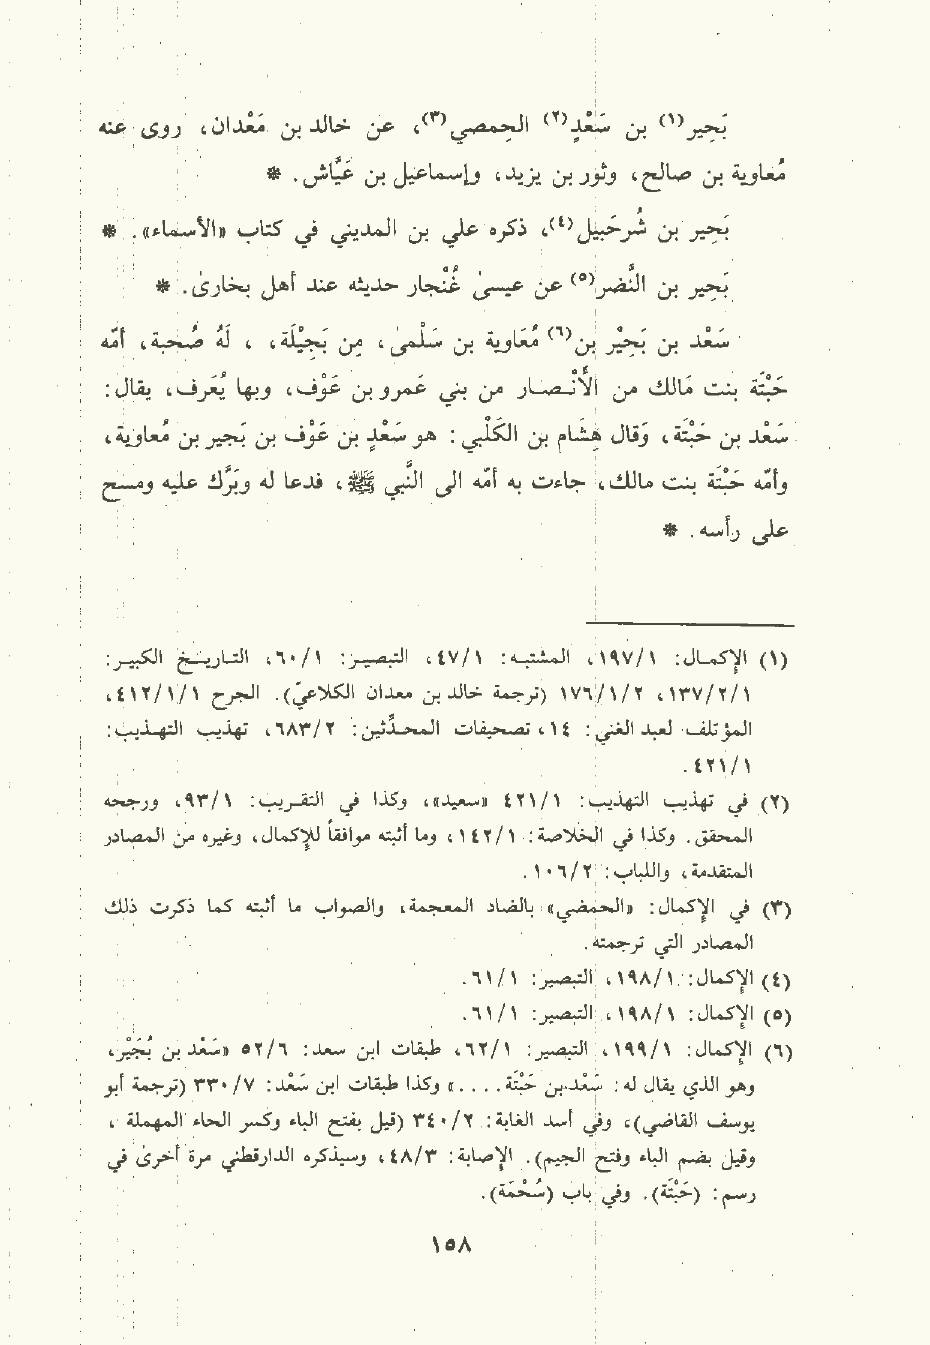 بَحِير(١) بن سَعْدٍ(٢) الحِمصي(٣)، عن خالد بن مَعْدان، روى عنه
مُعاوية بن صالح، وثور بن يزيد، وإسماعيل بن عَيَّاش. *
بَحِير بن شُرحَبيل(٤)، ذكره علي بن المديني في كتاب «الأسماء». *
بَحِير بن النَّضر(٥) عن عيسىٰ غُنْجار حديثه عند أهل بخارىٰ. *
سَعْد بن بَحِيْر بن(٦) مُعَاوية بن سَلْمىٰ، مِن بَجِيْلَة، ، لَهُ صُحبة، أمّه
حَبْتَة بنت مَالك من الأَنْـصـار من بني عَمرو بن عَوْف، وبها يُعَرف، يقال:
سَعْد بن حَبْتَة، وَقال هِشَام بن الكَلْبي: هو سَعْدٍ بن عَوْف بن بَحير بن مُعاوية،
وأمّه حَبْتَة بنت مالك، جاءت به أمّه الى النَّبي ﷺ، فدعا له وبَرَّك عليه ومسح
على رأسه. *
(١) الإكمـال: ١٩٧/١، المشتبـه: ٤٧/١، التبصيـر: ٦٠/١، التـاريـخ الكبيـر:
١٣٧/٢/١، ١٧٦/١/٢ (ترجمة خالد بن معدان الكلاعيّ). الجرح ٤١٢/١/١،
المؤتلف لعبد الغني: ١٤، تصحيفات المحـدِّثين: ٦٨٣/٢، تهذيب التهـذيب:
٤٢١/١.
(٢) في تهذيب التهذيب: ٤٢١/١ «سعيد»، وكذا في التقـريب: ٩٣/١، ورجحه
المحقق. وكذا في الخلاصة: ١٤٢/١، وما أثبته موافقاً للإكمال، وغيره من المصادر
المتقدمة، واللباب: ١٠٦/٢.
(٣) في الإكمال: «الحمضي» بالضاد المعجمة، والصواب ما أثبته كما ذكرت ذلك
المصادر التي ترجمته.
(٤) الإكمال: ١٩٨/١، التبصير: ٦١/١.
(٥) الإكمال: ١٩٨/١، التبصير: ٦١/١.
(٦) الإكمال: ١٩٩/١، التبصير: ٦٢/١، طبقات ابن سعد: ٥٢/٦ «سَعْد بن بُجَيْر،
وهو الذي يقال له: سَعْد بن حَبْتَة....» وكذا طبقات ابن سَعْد: ٣٣٠/٧ (ترجمة أبو
يوسف القاضي)، وفي أسد الغابة: ٣٤٠/٢ (قيل بفتح الباء وكسر الحاء المهملة ،
وقيل بضم الباء وفتح الجيم). الإصابة: ٤٨/٣، وسيذكره الدارقطني مرة أخرىٰ في
رسم: (حَبْتَة). وفي باب (سُحْمَة).
١٥٨